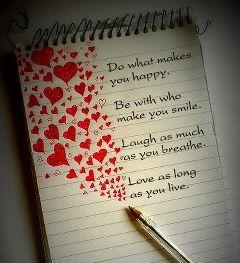 Do what makes
you happy.
Be with who
make you smile.
Laugh as much
as you breathe.
Love as long
as you live.